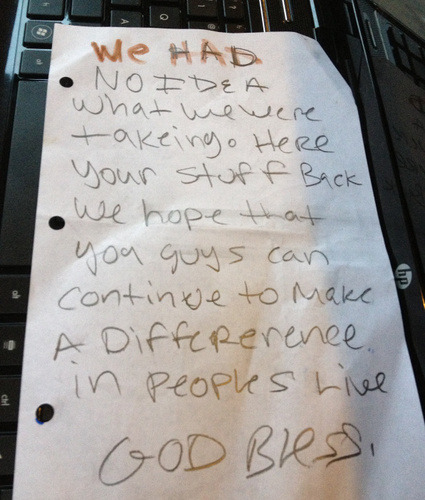 WE HAD
NO IDEA
what we were
takeing. Here
your stuff Back
we hope that
you guys can
continue to Make
A Difference
in peoples Live
GOD Bless.
hp